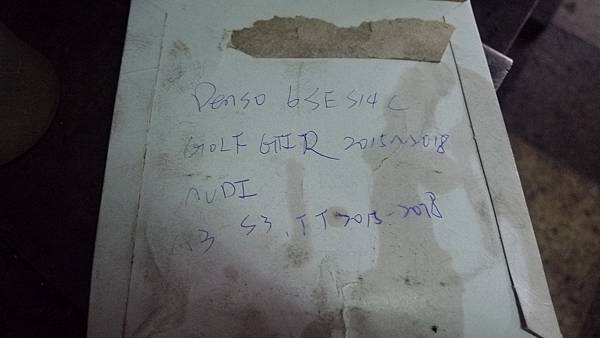 Denso 6SES14C
GOLF GTI R 2015~2018
AUDI
A3 S3, TT 2015-2018